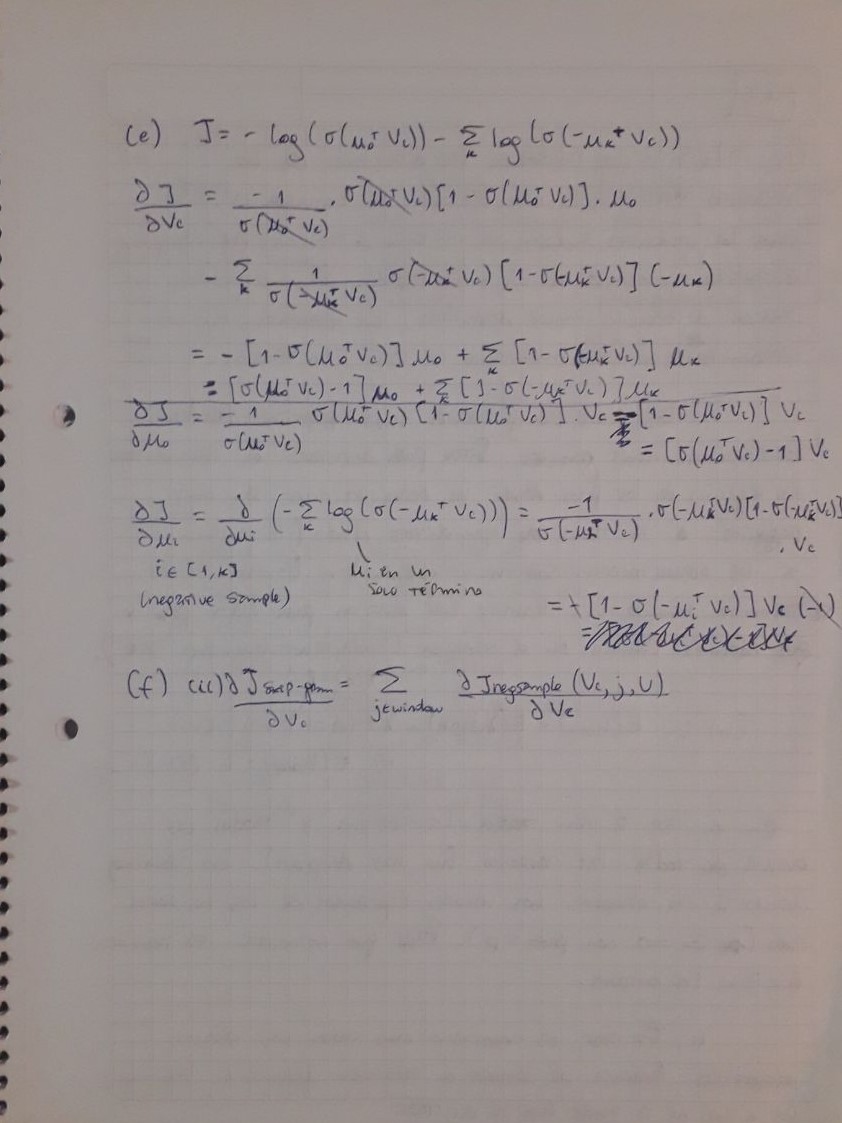 (e) J = - log(σ(μo^T Vc)) - Σ_k log(σ(-μk^T Vc))
∂J/∂Vc = -1/σ(μo^T Vc) · σ(μo^T Vc)[1 - σ(μo^T Vc)] · μo
- Σ_k 1/σ(-μk^T Vc) σ(-μk^T Vc) [1-σ(-μk^T Vc)] (-μk)
= - [1-σ(μo^T Vc)] μo + Σ_k [1 - σ(-μk^T Vc)] μk
= [σ(μo^T Vc) - 1] μo + Σ_k [1 - σ(-μk^T Vc)] μk
∂J/∂μo = -1/σ(μo^T Vc) σ(μo^T Vc) [1-σ(μo^T Vc)] · Vc = -[1-σ(μo^T Vc)] Vc
= [σ(μo^T Vc) - 1] Vc
∂J/∂μi = ∂/∂μi (-Σ_k log(σ(-μk^T Vc))) = -1/σ(-μk^T Vc) · σ(-μk^T Vc)[1-σ(-μk^T Vc)]
· Vc
i ∈ [1,K] μi en un
(negative sample) solo término
= + [1 - σ(-μi^T Vc)] Vc (-1)
(f) (ii) ∂J skip-gram/∂Vc = Σ_{j∈window} ∂Jnegsample (Vc, j, U)/∂Vc